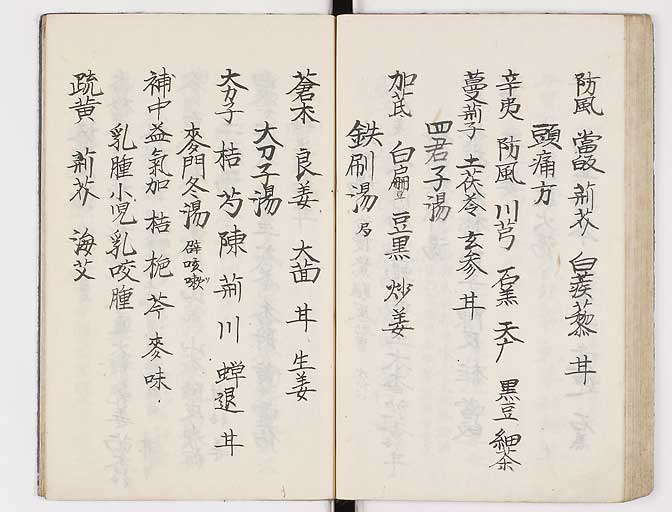 防風 當皈 荊芥 白蒺藜 甘
頭痛方
辛夷 防風 川芎 石羔 天广 黒豆 細茶
蔓荊子 土茯苓 玄参 甘
四君子湯
加芪 白扁豆 豆黒 炒姜
鉄刷湯 局
蒼朮 良姜 大茴 甘 生姜
大刀子湯
大刀子 桔 芍 陳 荊 川 蝉退 甘
麥門冬湯 癖咳嗽ツ
補中益氣加 桔 梔 芩 麥 味
乳腫小児乳咬腫
疏黄 荊芥 海艾